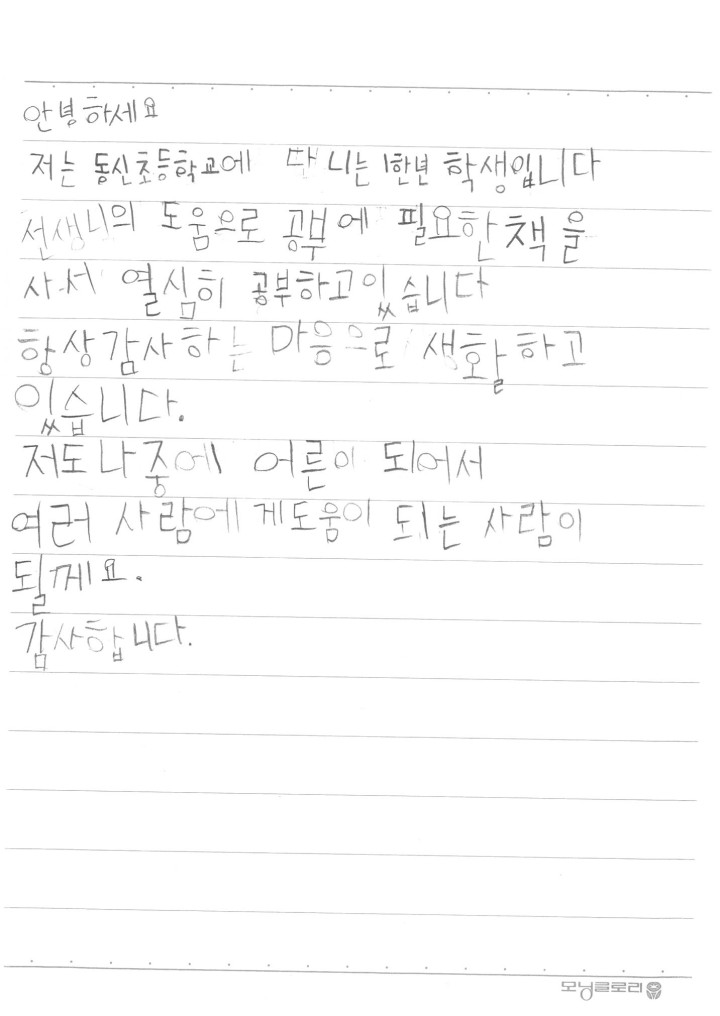 안녕하세요
저는 동신초등학교에 따니는 1한년 학생입니다
선생니의 도움으로 공부에 필요한 책을
사서 열심히 공부하고있습니다
항상감사하는 마음으로 생활하고
있습니다.
저도나중에 어른이 되어서
여러 사람에게도움이 되는 사람이
될께요.
감사합니다.
모닝글로리